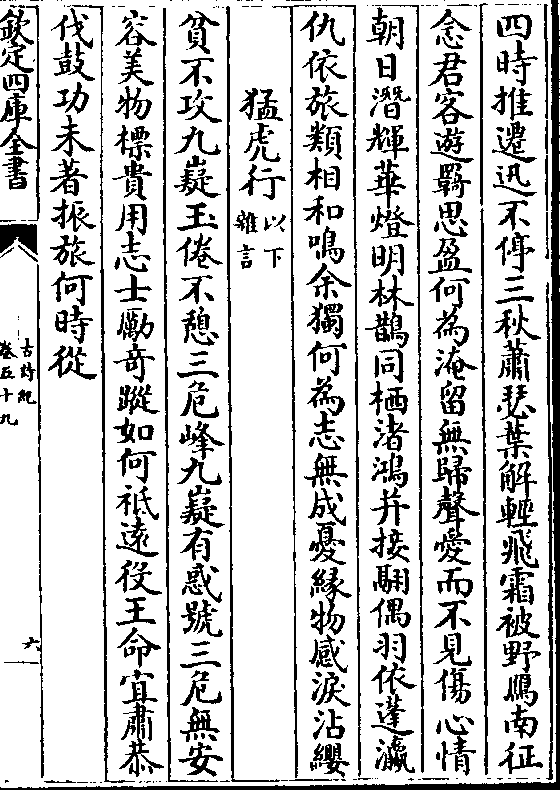 四時推遷迅不停三秋蕭瑟葉解輕飛霜被野鴈南征
念君客遊羇思盈何為淹留無歸聲愛而不見傷心情
朝日潛輝華燈明林鵲同栖渚鴻并接翮偶羽依蓬瀛
仇依旅類相和鳴余獨何為志無成憂緣物感淚沾纓
猛虎行以下雜言
貧不攻九嶷玉倦不憩三危峰九嶷有惑號三危無安
容美物標貴用志士勵奇蹤如何祗遠役王命宜肅恭
伐鼓功未著振旅何時從
欽定四庫全書
古詩紀
卷五十九
六